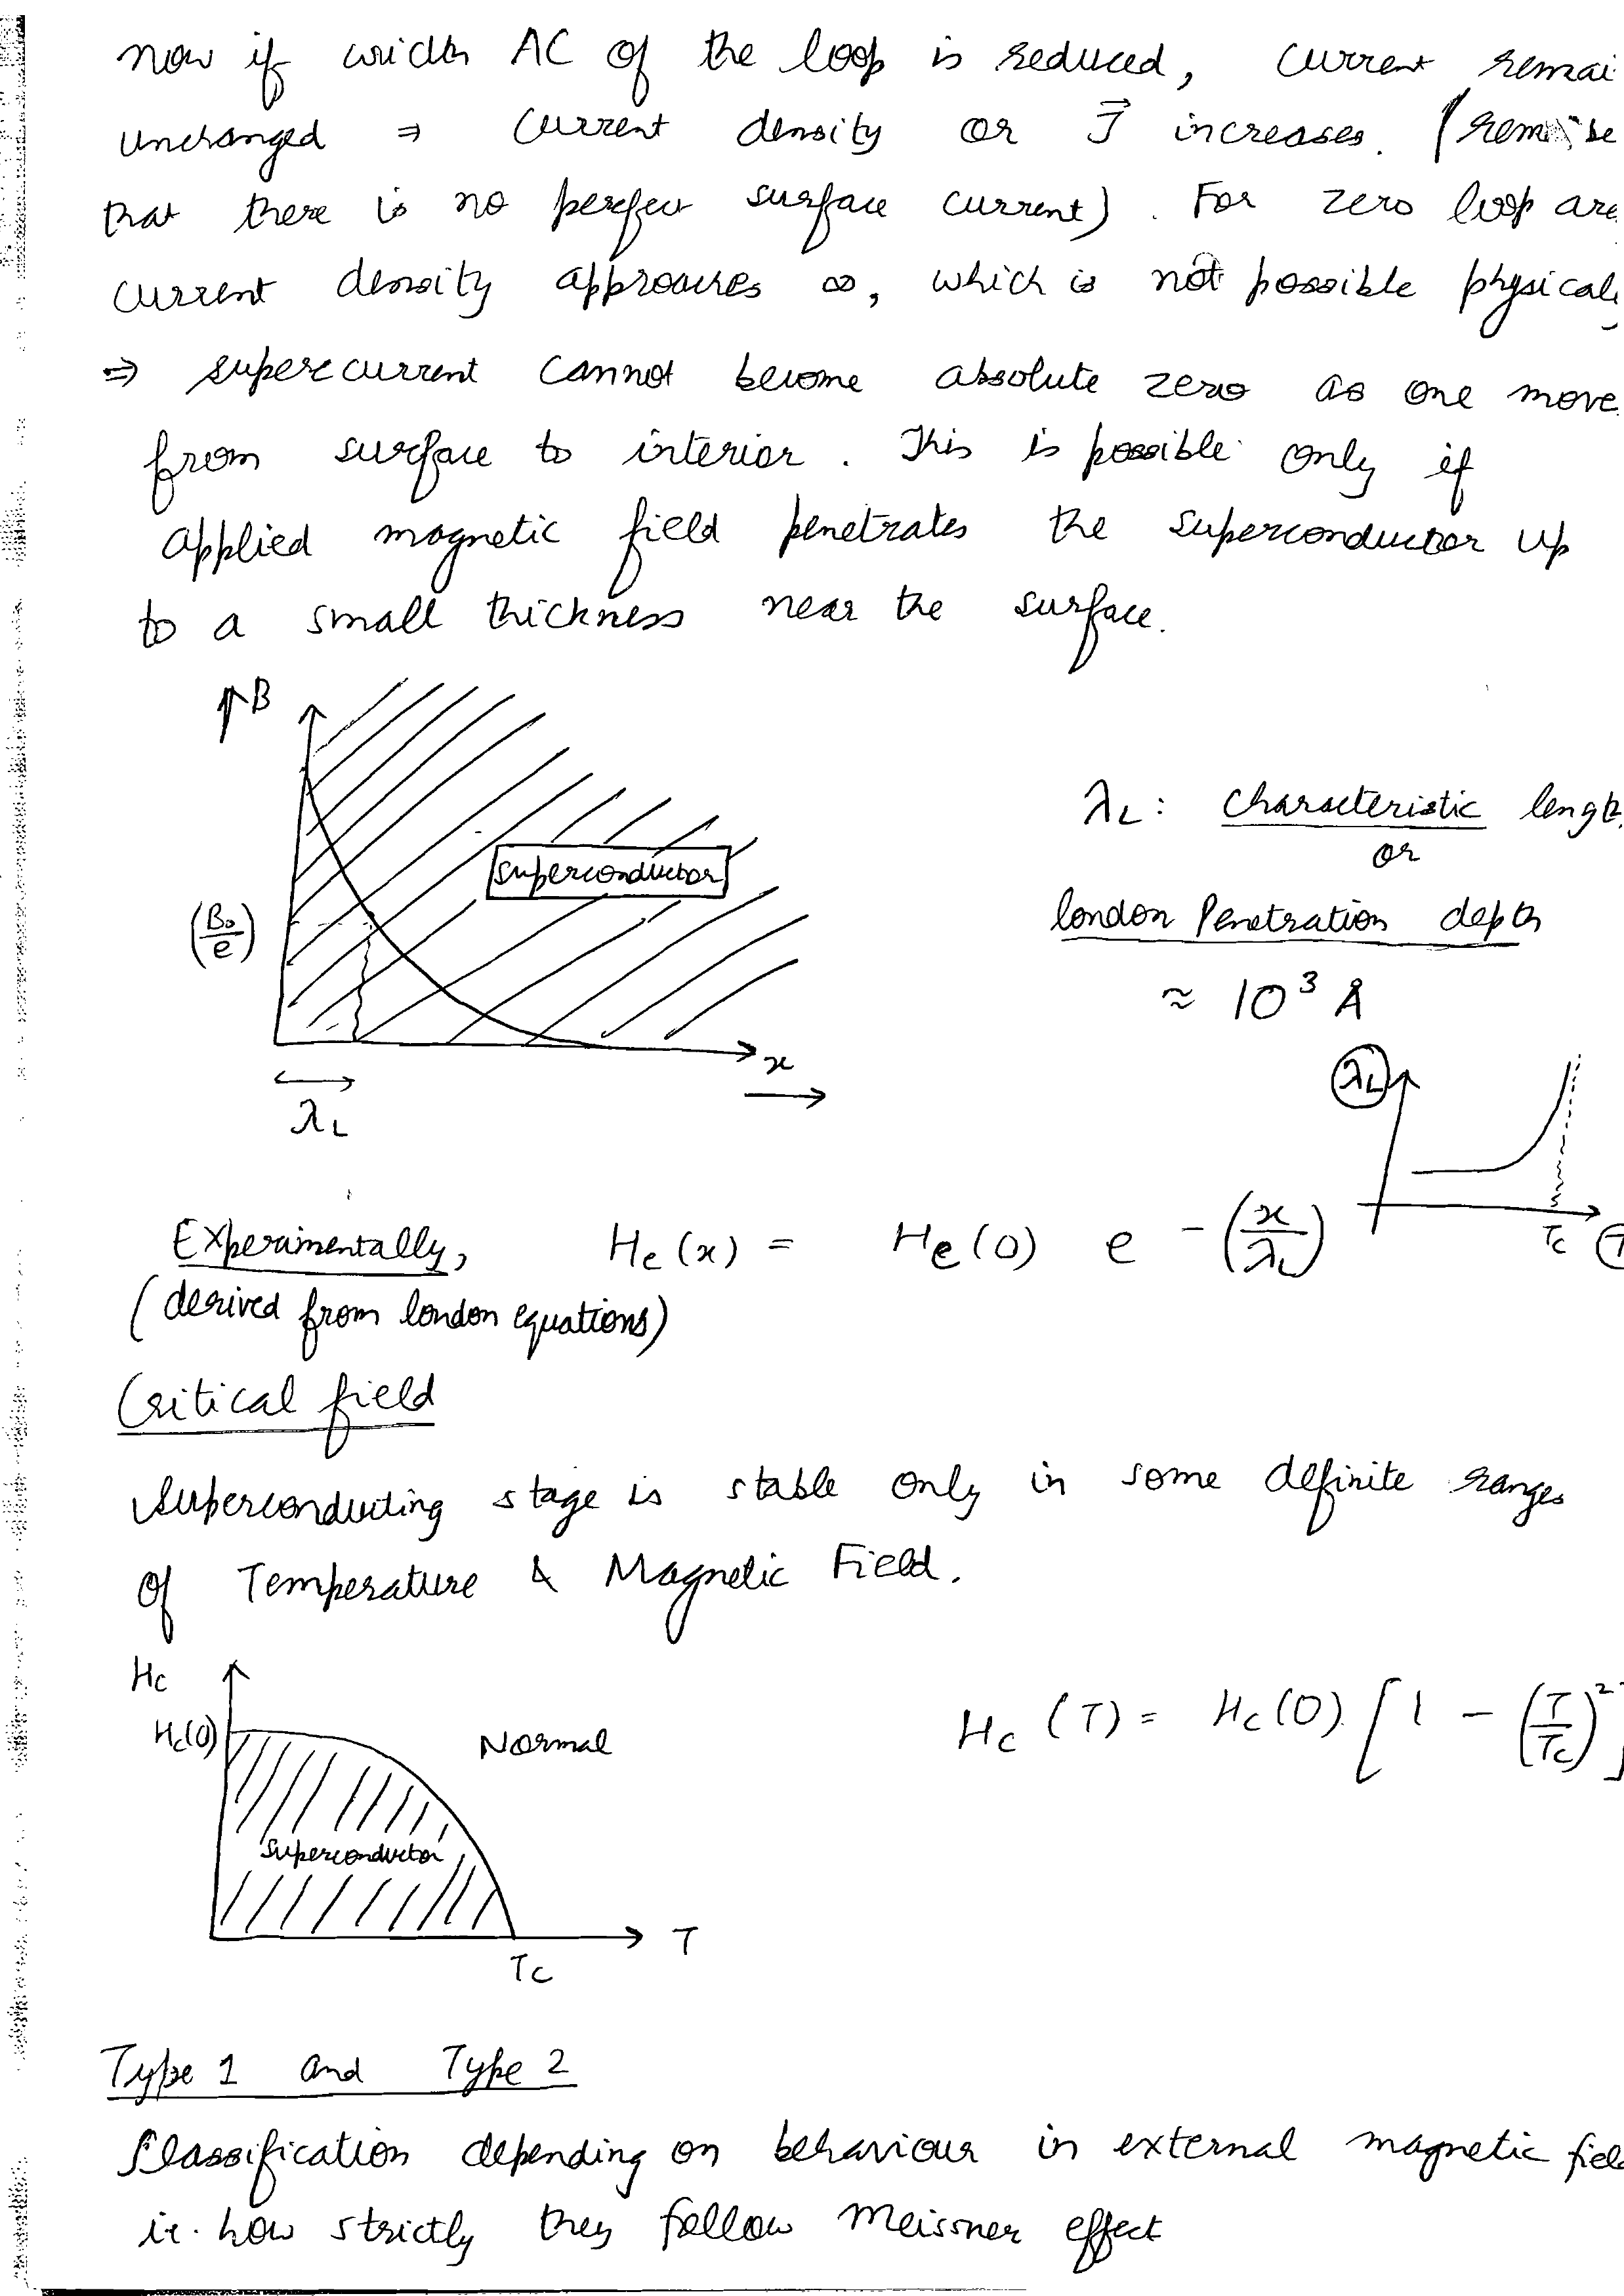 now if width AC of the loop is reduced, current remai
unchanged ⇒ current density or J⃗ increases. (rem
that there is no perfect surface current). For zero loop are
current density approaches ∞, which is not possible physical
⇒ supercurrent cannot become absolute zero as one move
from surface to interior. This is possible only if
applied magnetic field penetrates the superconductor up
to a small thickness near the surface.
↑B
Superconductor
(B₀/e)
x
λL
λL: Characteristic lengt
or
london Penetration depth
≈ 10³ Å
λL
Tc
T
Experimentally, He(x) = He(0) e^-(x/λL)
(derived from london equations)
Critical field
Superconducting stage is stable only in some definite ranges
of Temperature & Magnetic Field.
Hc
Hc(0)
Normal
Superconductor
T
Tc
Hc (T) = Hc(0) [1 - (T/Tc)²]
Type 1 and Type 2
Classification depending on behaviour in external magnetic fiel
ie. how strictly they follow Meissner effect